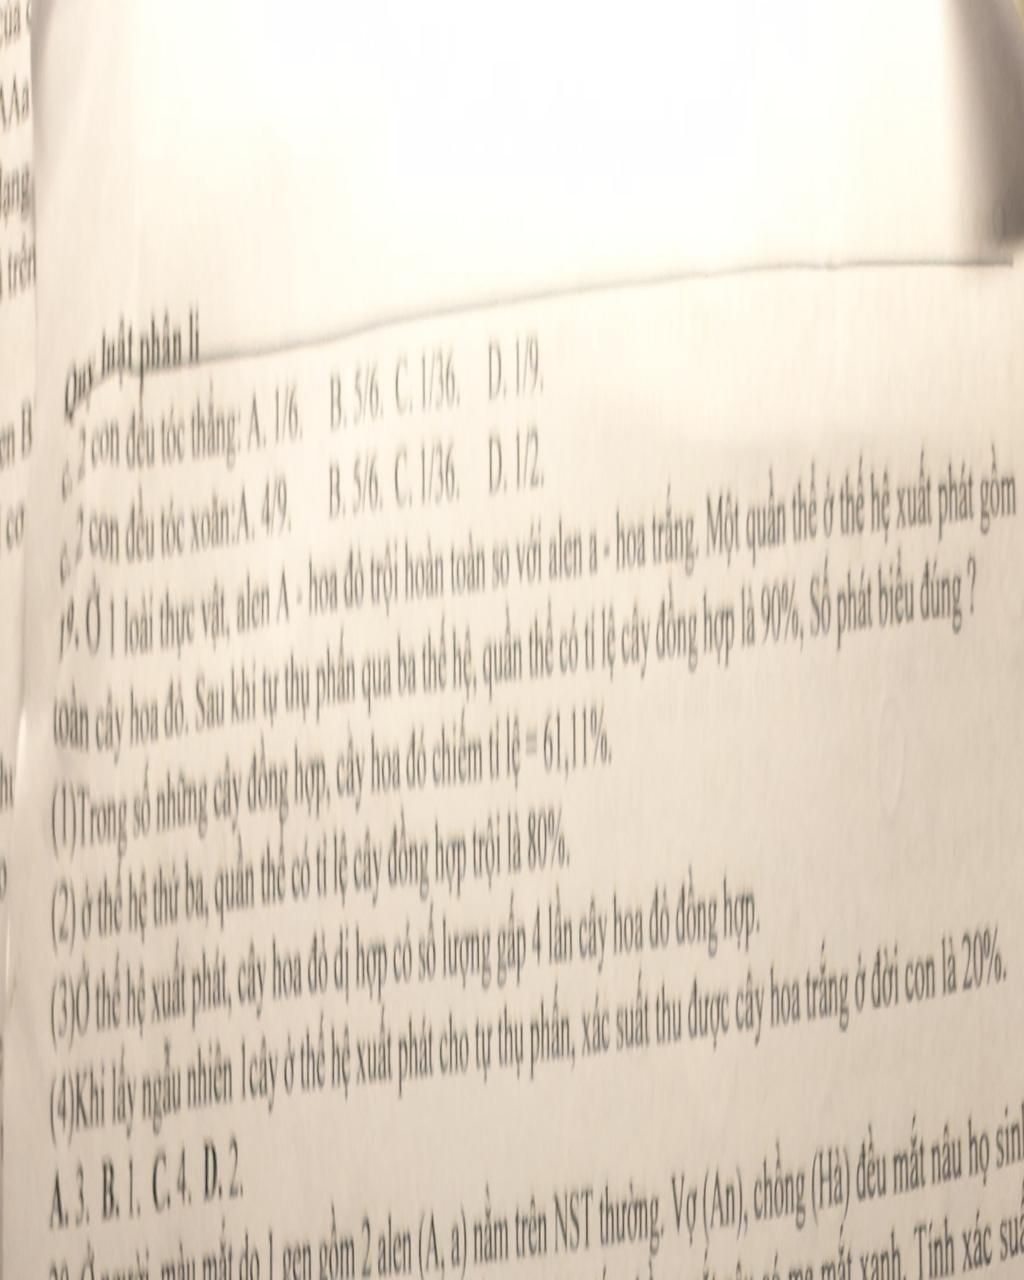 của
AAa
trên
en B
có
Quy luật phân li
c. 2 con đều tóc thẳng: A. 1/6. B. 5/6. C. 1/36. D. 1/9.
c. 2 con đều tóc xoăn:A. 4/9. B. 5/6. C. 1/36. D. 1/2.
Ở 1 loài thực vật, alen A - hoa đỏ trội hoàn toàn so với alen a - hoa trắng. Một quần thể ở thế hệ xuất phát gồm
toàn cây hoa đỏ. Sau khi tự thụ phấn qua ba thế hệ, quần thể có tỉ lệ cây đồng hợp là 90%, Số phát biểu đúng ?
(1)Trong số những cây đồng hợp, cây hoa đỏ chiếm tỉ lệ = 61,11%.
(2) ở thế hệ thứ ba, quần thể có tỉ lệ cây đồng hợp trội là 80%.
(3)Ở thế hệ xuất phát, cây hoa đỏ dị hợp có số lượng gấp 4 lần cây hoa đỏ đồng hợp.
(4)Khi lấy ngẫu nhiên 1cây ở thế hệ xuất phát cho tự thụ phấn, xác suất thu được cây hoa trắng ở đời con là 20%.
A. 3. B. 1. C. 4. D. 2.
Ở người, màu mắt do 1 gen gồm 2 alen (A, a) nằm trên NST thường. Vợ (An), chồng (Hà) đều mắt nâu họ sinh
mẹ mắt xanh. Tính xác suấ